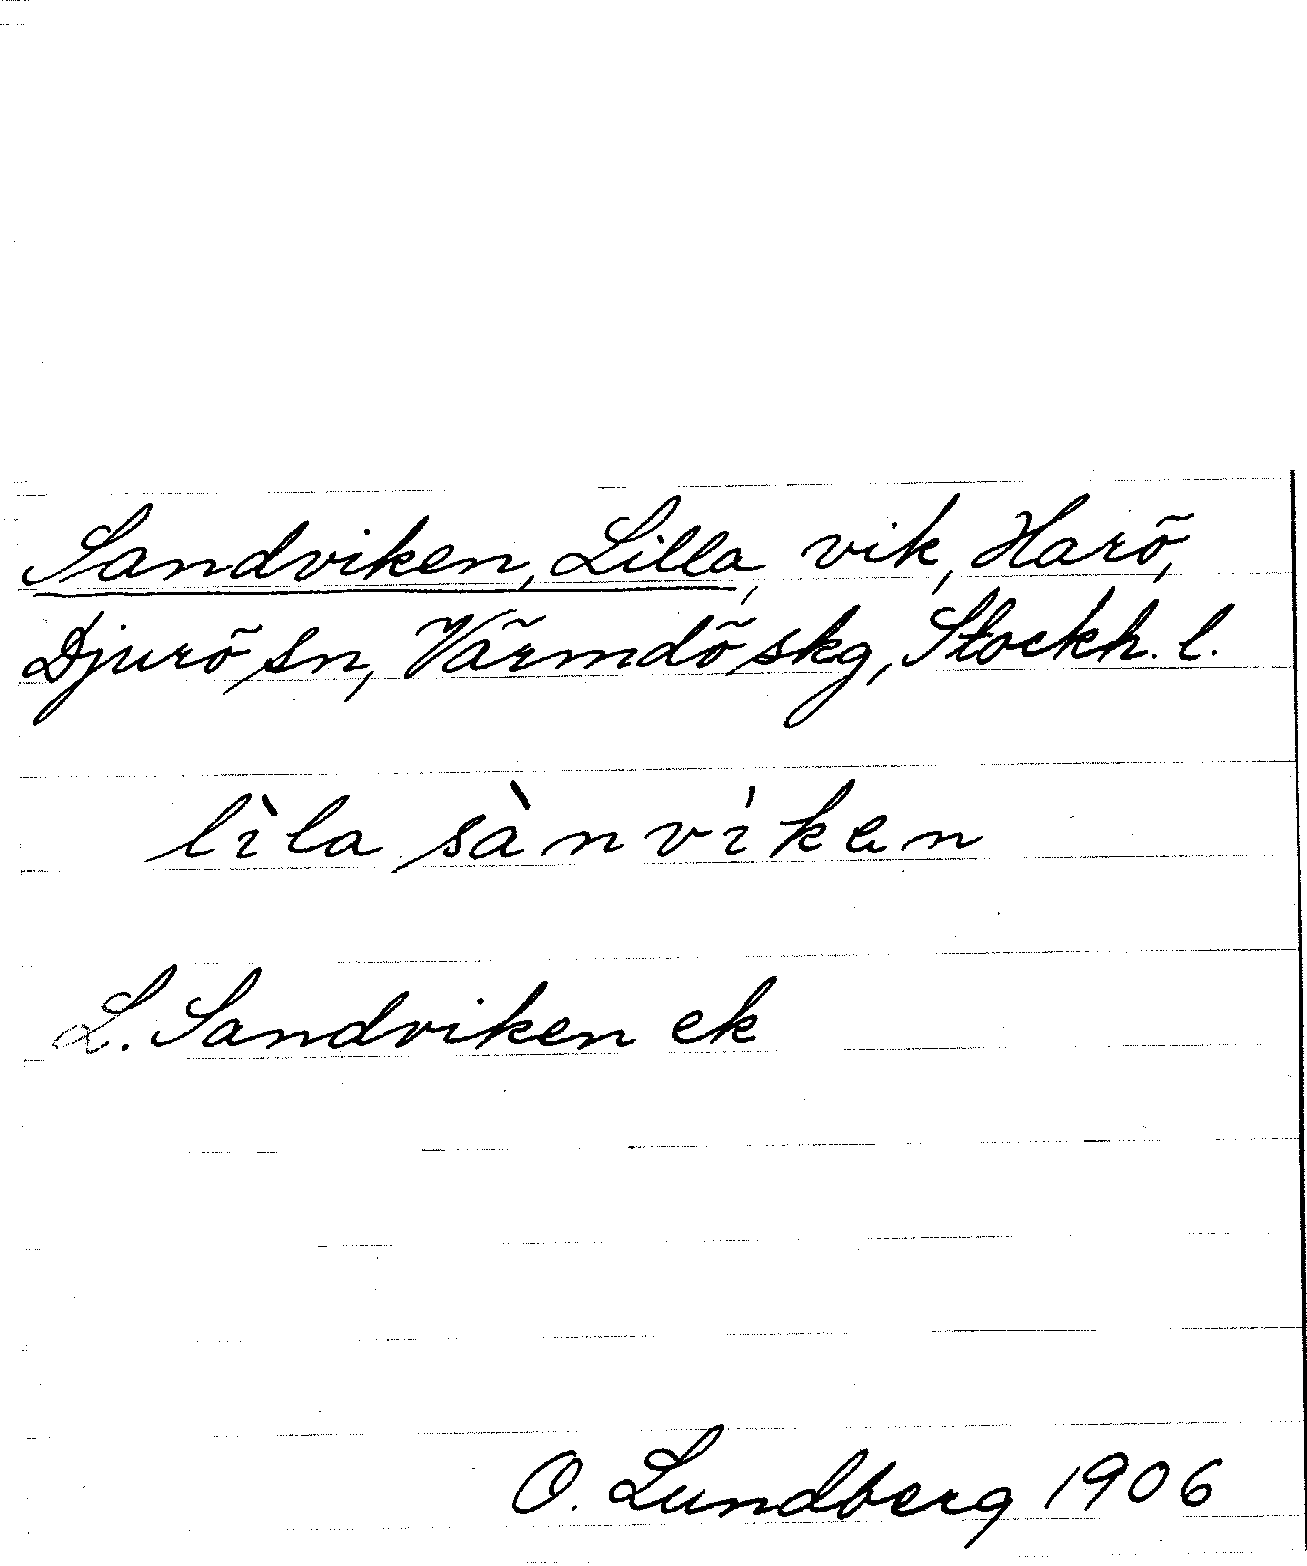 Sandviken, Lilla, vik, Harö,
Djurö sn, Värmdö skg, Stockh. l.
lìla sànvìken
L. Sandviken ek
O. Lundberg 1906